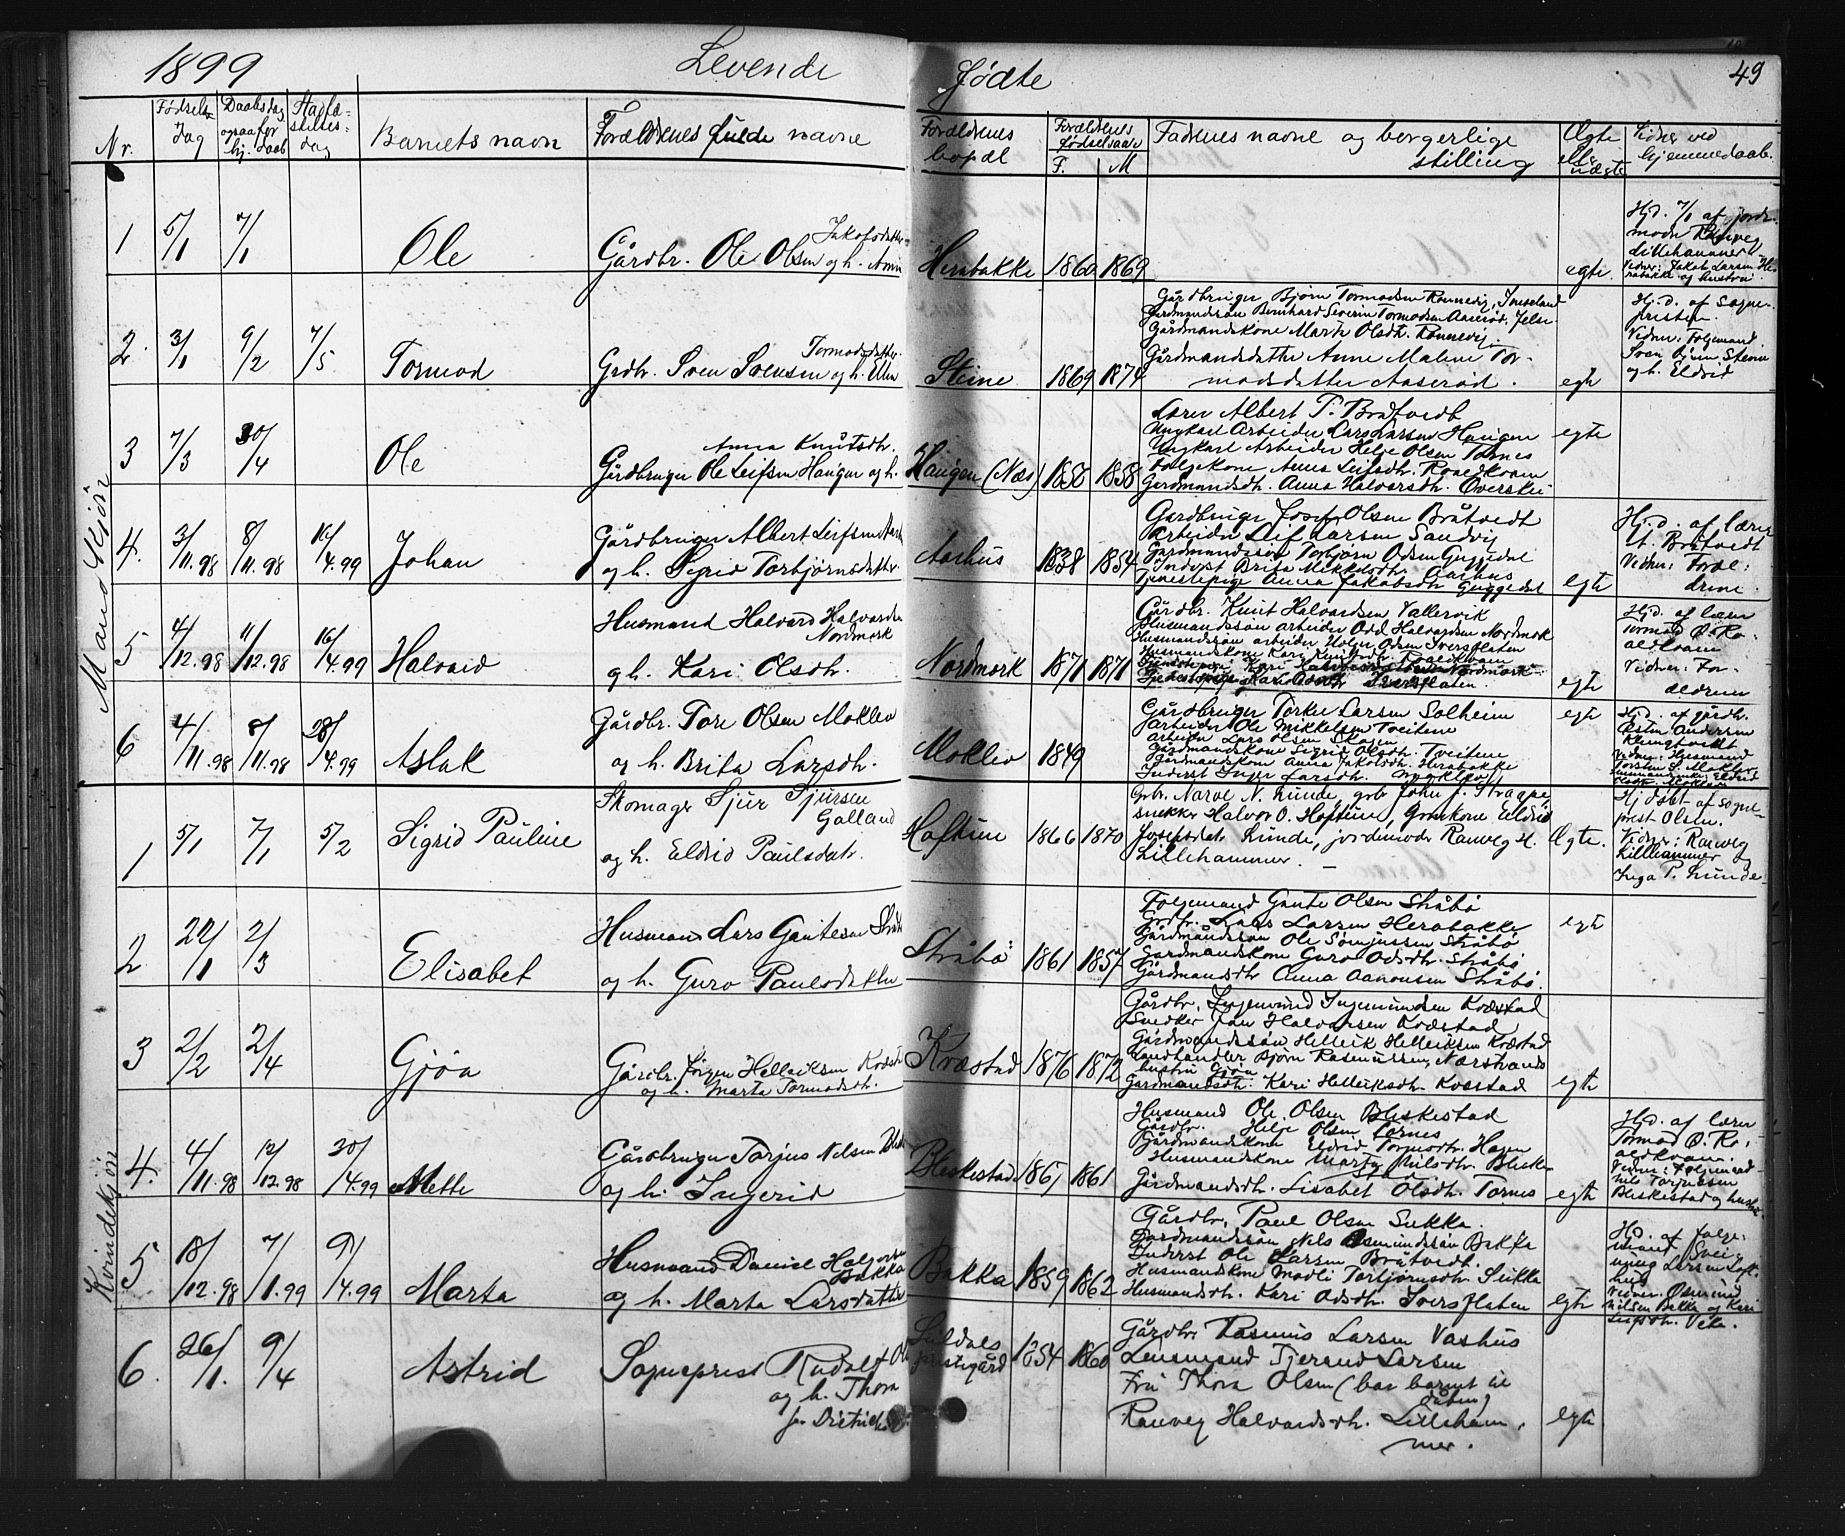 1899 Levende fødte 49
Nr. Fødsels Dag Daabsdag ogsaa for hj. daab Stadfæstelses dag Barnets navn Forældrenes fulde navne Forældrenes bopæl Forældrenes fødselsaar F. M Fadrenes navne og borgerlige stilling Ægte eller uægte Vidner ved hjemmedaab.
Mandkjøn
1 5/1 7/1 Ole Gårdbr. Ole Olsen og h. Jakobsdatter Herabakke 1860 1869 egte
Hjd. 7/1 af jorde-
moder Ranveg
Lillehammer
Vidner: Jakob Larsen He-
rabakke og hustru
2 3/1 9/2 7/5 Tormod Grdbr. Sven Svensen og h. Ellen Tormodsdatter Steine 1869 1874 egte
Gårdbruger Bjørn Tormodsen
Gardmandssøn Bernhard Severin Tormodsen Jelse
Gårdmandskone Marte Olsdtr.
Gårdmandsdatter Anne Malene Tor-
modsdatter Aaserød.
Hj.d. af sogne-
presten.
Vidner: Folgemand
Sven Steine
og h. Eldrid
3 7/3 30/4 Ole Gårdbruger Ole Leifsen Haugen og h. Anna Knutsdtr. Haugen (Næs) 1858 1858 egte
Lærer Albert T. Bråtvedt
Ungkarl Arbeider Lars Larsen Haugen
Ungkarl Arbeider Helge Olsen Tornes
Folgekone Anna Leifsdtr. Roaldkvam
Gardmandsdtr. Anna Halvorsdtr.
4. 3/11.98 8/11.98 16/4.99 Johan Gårdbruger Albert Leifsen
og h. Sigrid Torbjørnsdatter Aarhus 1838 1854 egte
Gardbruger Josef Olsen Bråtvedt
Arbeider Leif Larsen Sandvig
Gardmandssøn Torbjørn Odsen Guggedal
Inderst Brita Mikkelsdtr. Aarhus
Tjenestepige Anna Jakobsdtr Guggedal
Hj.d. af lærer
Bråtvedt
Vidner: Foræl-
drene.
5 4/12.98 11/12.98 16/4.99 Halvard Husmand Halvard Halvardsen
Nordmork
og h. Kari Olsdtr. Nordmork 1871 1871 egte
Gårdbr. Knut Halvardsen Vallervik
Husmandssøn arbeider Odd Halvardsen Nordmork
Husmandssøn arbeider Helge Odsen Iversflaten
Husmandskone Kari Knutsdtr. Roaldkvam
Tjenestepige Kari Nordmork
Tjenestepige Kari Odsdtr Iversflaten.
Hj.d. af lærer
Tormod O. Ro-
aldkvam
Vidner: For-
ældrene
6 4/11.98 8/11.98 28/4.99 Aslak Gårdbr. Tore Olsen Moklev
og h. Brita Larsdtr. Moklev 1849 egte
Gårdbruger Torkel Larsen Solheim
Arbeider Ole Mikkelsen Tveitene
Arbeider Lars Olsen
Gårdmandskone Sigrid Olsdtr. Tveitene
Gårdmandskone Anna Jakobsdtr. Herabakke
Inderst Inger Larsdtr. Moklev
Hjd. af gårdbr.
Østen Andersen
Kleingtvedt
Vidner: Husmand
Torsten S. Moklev
Kvindekjøn
1 5/1 7/1 5/2 Sigrid Pauline Skomager Sjur Sjursen
Galland
og h. Eldrid Paulsdatr. Hoftun 1866 1870 Ægte.
Grbr. Narve N. Lunde, grbr John J. Straape,
snekker Halvor O. Hoftun, Grmkone Eldrid
Josefsdatr Lunde, jordemoder Ranveg H.
Lillehammer.
Hjdøbt af sogne-
prest Olsen.
Vidner: Ranveg
Lillehammer og
Inga P. Lunde
2 22/1 2/3 Elisabet Husmand Lars Gautesen Stråbø
og h. Guro Paulsdatter Stråbø 1861 1857 egte
Folgemand Gaute Olsen Stråbø
Grdbr. Lars Larsen Herabakke
Gårdmandssøn Ole Stråbø
Gardmandskone Guro Odsdtr. Stråbø
Gårdmandsdtr Anna Aanonsen Stråbø.
3 2/2 2/4 Gjøa Gårdbr. Jørgen Helleiksen Kvæstad
og h. Marta Tormodsdtr. Kvæstad 1876 1872 egte
Gårdbr. Ingemund Ingemundsen Kvæstad
Snedker Jan Halvorsen Kvæstad
Gårdmandssøn Helleik Helleiksen Kvæstad
Landhandler Bjørn Rasmussen, Nærstrand
hustru Gjøa
Gardmandsdtr. Kari Helleiksdtr. Kvæstad
4. 4/11.98 12/12.98 30/4.99 Mette Gårdbruger Torjus Nilsen
og h. Ingerid Bleskestad 1861 1861 egte
Husmand Ole Olsen Bleskestad
Gårdbr. Helge Olsen Tornes
Gårdmandskone Eldrid Tormodtr. Hagen
Husmandskone Marta Nilsdtr. Bleske-
stad
Gårdmandsdtr. Lisabet Olsdtr. Tornes
Hjd. af lærer
Tormod O. Ro-
aldkvam.
Vidner: Folgemand
Nils Torjussen
Bleskestad og hustru
5 18/12.98 7/1.99 9/4.99 Marta Husmand Daniel Halvorsen
Bakka
og h. Marta Larsdatter Bakka 1859 1862 egte
Gårdbr. Paul Olsen Sukka.
Gardmandssøn Nils Osmundssøn Bakka
Inderst Ole Larsen Bråtvedt.
Husmandskone Madli Torbjørnsdtr. Sukka
Husmandsdtr. Kari Odsdtr. Iversflaten
Hd. af folge-
mand Svein
Larsen Loft-
hus
Vidner. Osmund
Nilsen Bakka og Kari
6. 26/1. 9/4 Astrid Sogneprest Rudolf
og h. Thora
f. Dietrichs Suldals
prestegård 1854 1860 egte
Gårdbr Rasmus Larsen Vashus
Lensmand Tjerand Larsen
Fru Thora Olsen (bar barnet til
dåben)
Ranveg Halvardsdtr. Lilleham-
mer.